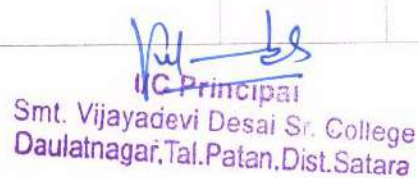 I/C Principal
Smt. Vijayadevi Desai Sr. College
Daulatnagar.Tal.Patan.Dist.Satara